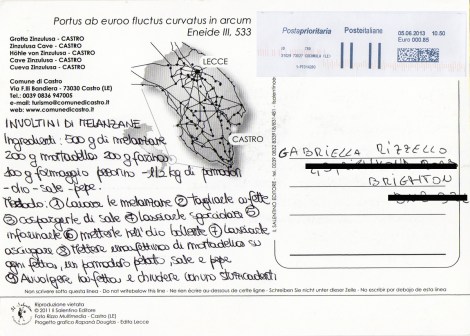 Portus ab euroo fluctus curvatus in arcum
Eneide III, 533
Grotta Zinzulusa - CASTRO
Zinzulusa Cave - CASTRO
Höhle von Zinzulusa - CASTRO
Cave Zinzulusa - CASTRO
Cueva Zinzulusa - CASTRO
Comune di Castro
Via F.lli Bandiera - 73030 Castro (LE)
Tel. 0039 0836 947005
e-mail: turismo@comunedicastro.it
web: www.comunedicastro.it
LECCE
CASTRO
Posteprioritaria
Posteitaliane
05.06.2013 10:50
Euro 000.85
INVOLTINI DI MELANZANE
Ingredienti: 500 g di melanzane
200 g mortadella 200 g farina
100 g formaggio pecorino - 1/2 kg di pomodori
- olio - sale - pepe.
Metodo: 1 lavare le melanzane 2 tagliarle a fette
3 cospargerle di sale 4 lasciarle sgocciolare 5
infarinarle 6 metterle nell'olio bollente 7 lasciarle
asciugare 8 Mettere una fettina di mortadella su
ogni fetta, un pomodoro pelato sale e pepe
9 Avvolgere la fetta e chiudere con uno stuzzicadenti
GABRIELLA RIZZELLO
BRIGHTON
Non scrivere sotto questa linea - Do not write below this line - Ne rien écrire au dessous de cette ligne - Schreiben Sie nicht unter dieser Zeile - No escribir por debajo de esta linea
Riproduzione vietata
© 2011 Il Salentino Editore
Foto Rizzo Multimedia - Castro (LE)
Progetto grafico Rapanà Douglas - Edita Lecce